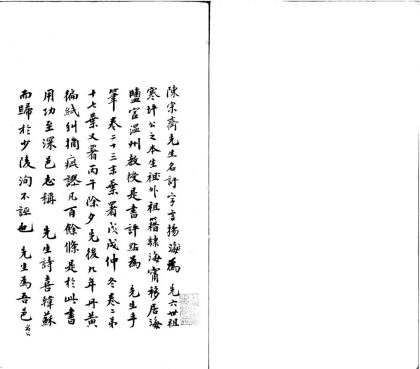 陳宗齋先生名訏字言揚海寧 先六世祖
寒坪公之本生祖外祖籍隸海甯移居海
鹽官溫州教授是書評點為 先生手
筆卷二十三末葉署戊戌仲冬卷二第
十七葉又署丙午除夕先後九年丹黃
徧紙糾摘疵謬凡百餘條是於此書
用功至深邑志稱 先生詩喜韓蘇
而歸於少陵洵不誣也 先生為吾邑